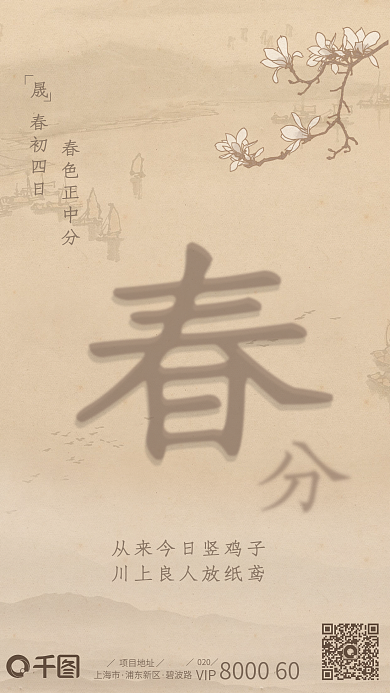 「晟」春初四日
春色正中分
春
分
从来今日竖鸡子
川上良人放纸鸢
千图
／ 项目地址 ／
上海市·浦东新区·碧波路
／ 020／
VIP 8000 60